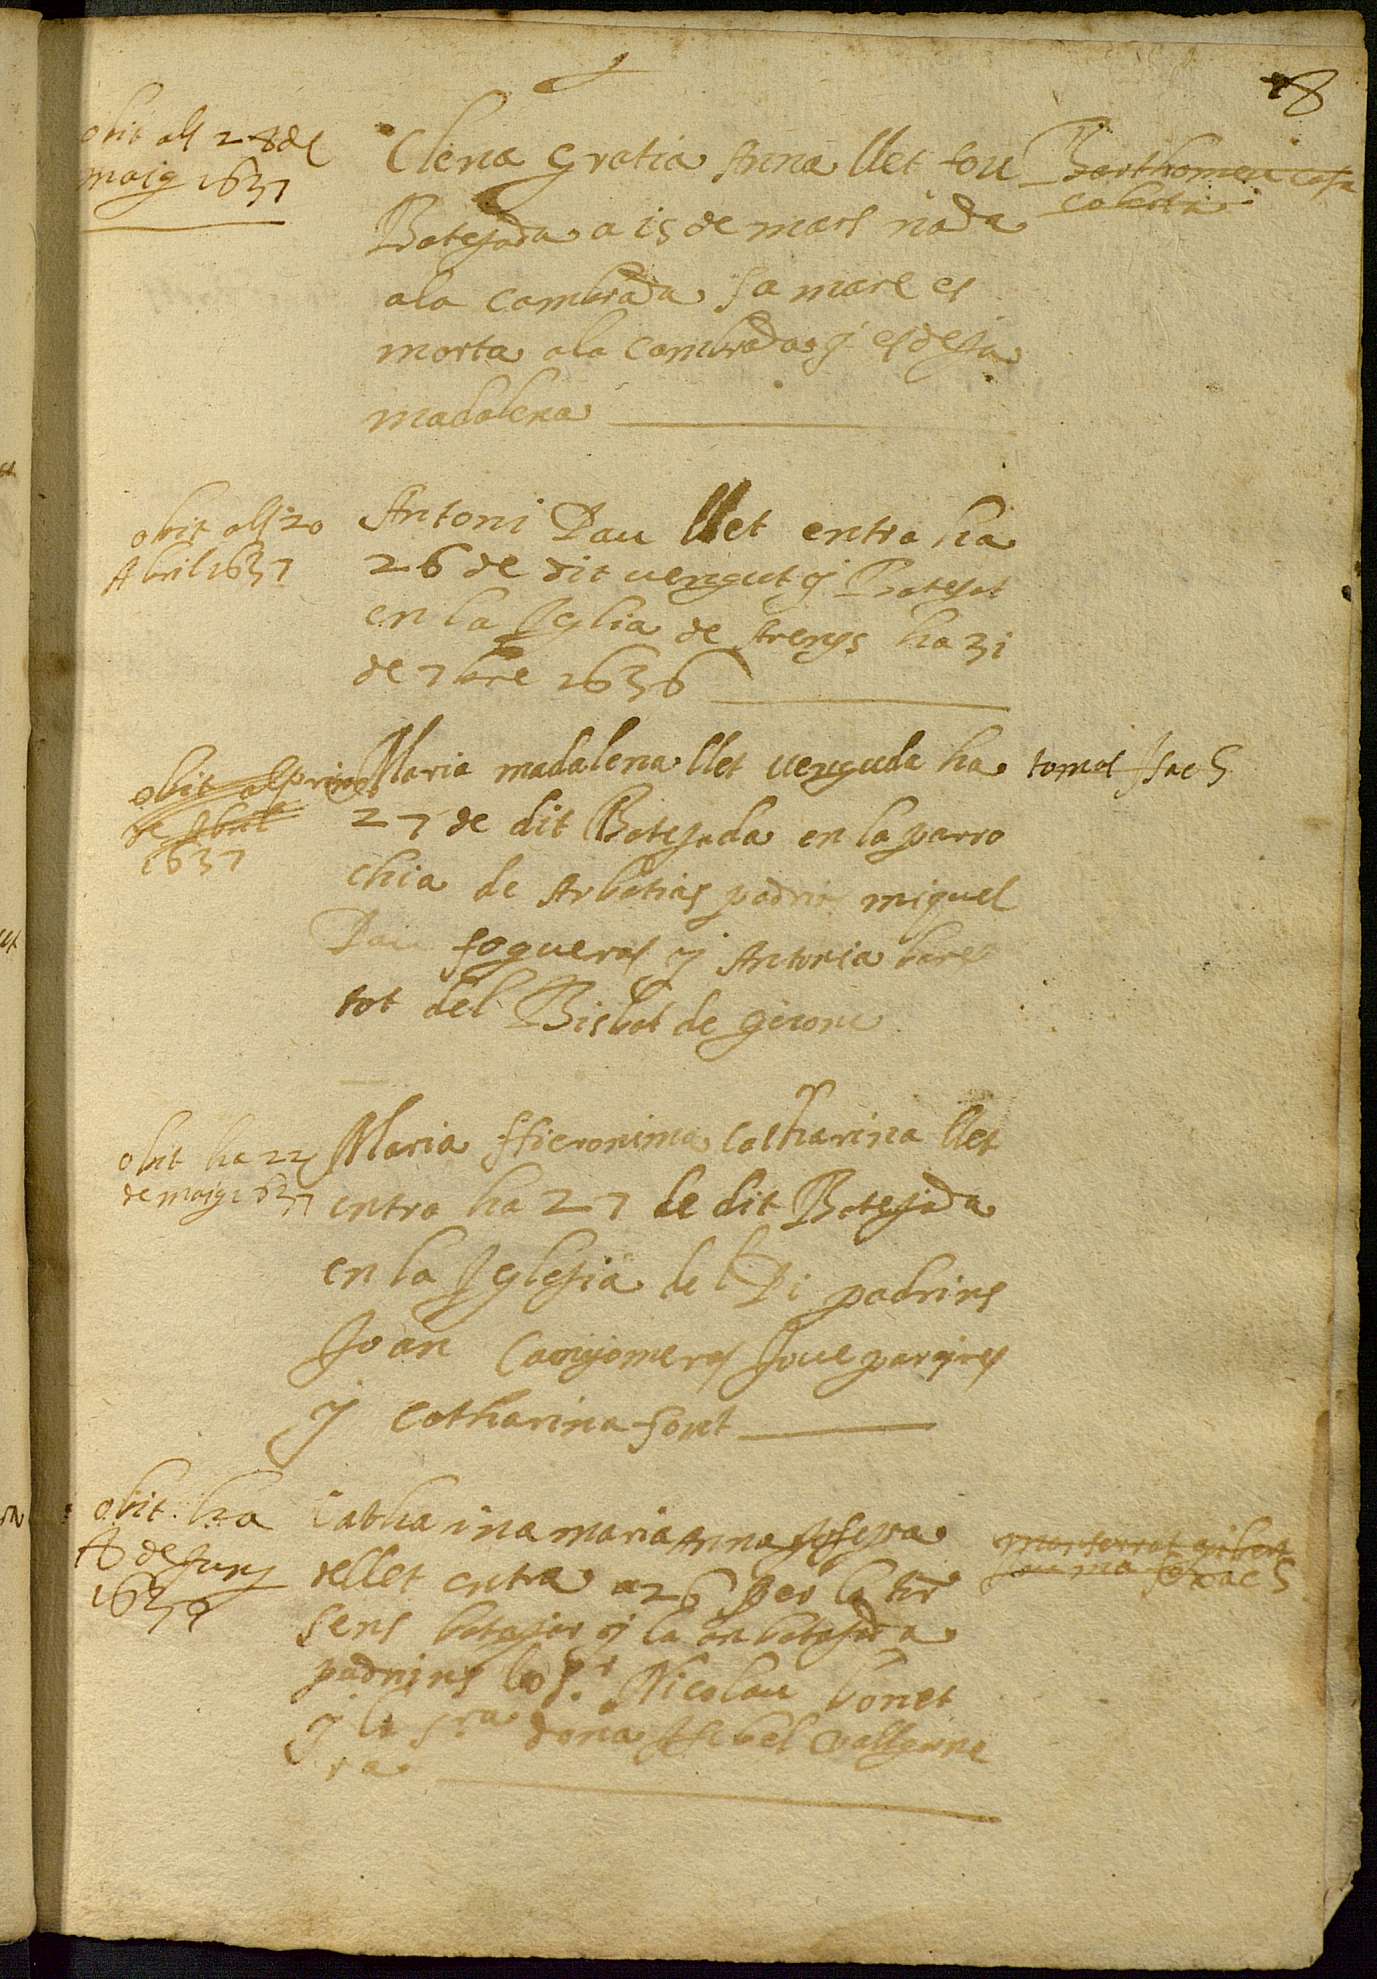 18
obit als 28 de
maig 1637
Elena gratia Anna llet fou
Batejada a 15 de mars nada
ala Cambrada sa mare es
morta ala Cambrada y es deja
madalena
Barthomeu casa
coberta
obit als 20
Abril 1637
Antoni Pau llet entra ha
26 de dit vengut y Batejat
en la Iglia de Arenys ha 31
de 7bre 1636
obit al primer
de Abril
1637
Maria madalena llet venguda ha
27 de dit Batejada en la parro
chia de Arbotias padrins miguel
Pau fogueras y Antonia
tot del Bisbat de girona
tomas Isach
obit ha 22
de maig 1637
Maria Hieronima Catharina llet
entra ha 27 de dit Batejada
en la Iglesia del Pi padrins
Joan Canyomeras Jove parayres
y Catharina font
obit ha
8 de Juny
1639
Catharina maria Anna Josepa
de llet entra a 26 per lo
sens batejar y la an batejada
padrins lo Sr. Nicolau bonet
y la Sra dona Isabel vallgorne
ra
monserrat gibert